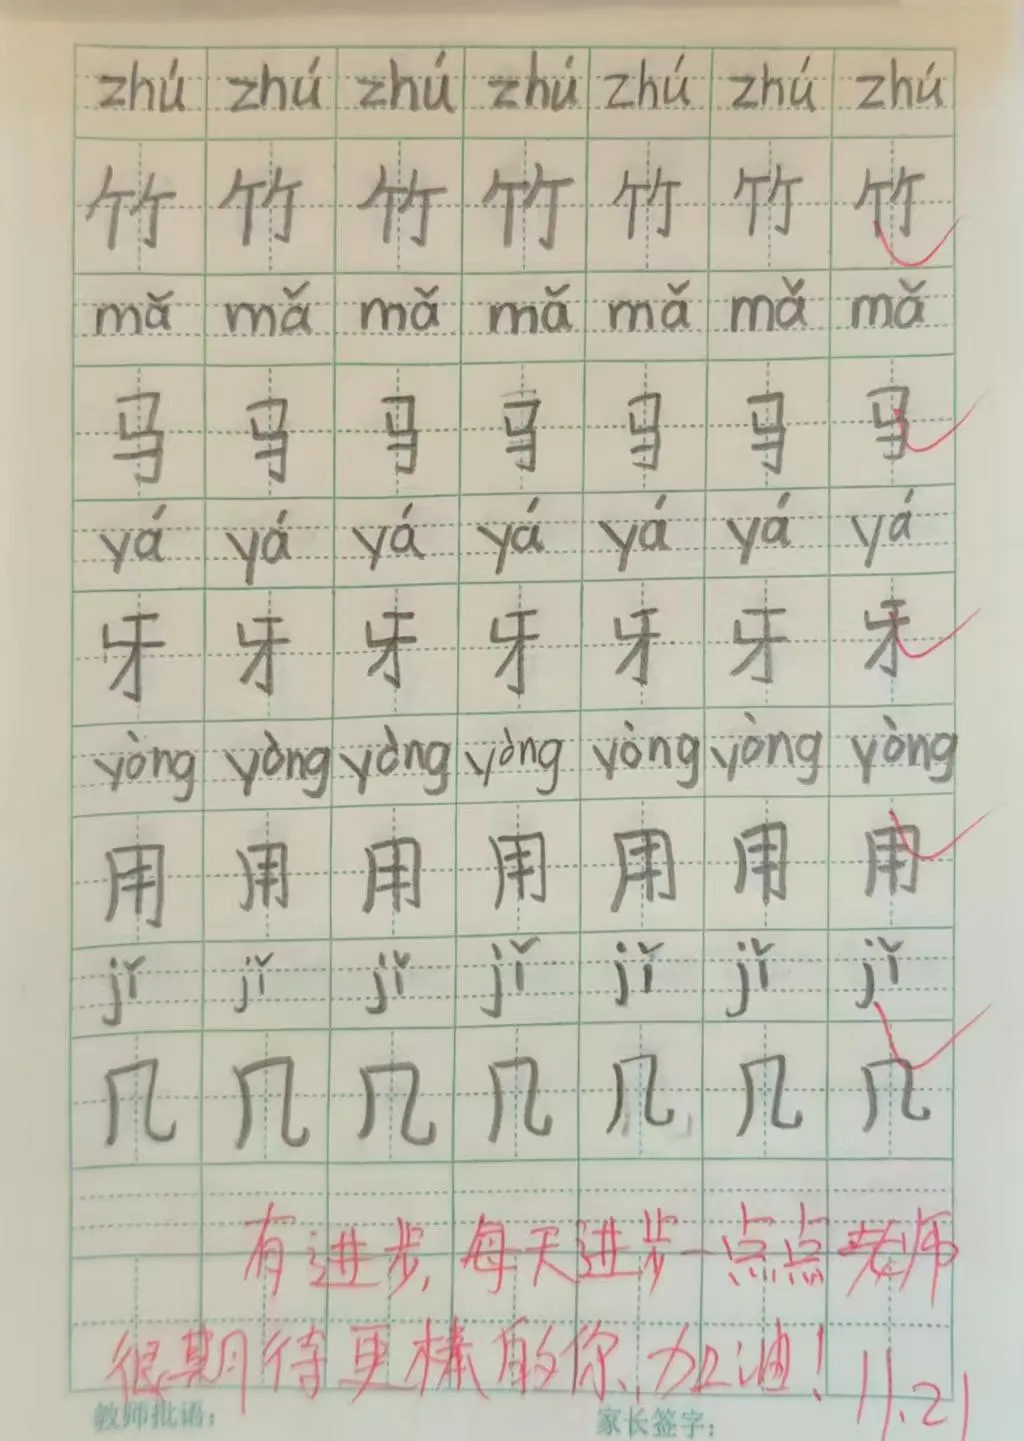 zhú zhú zhú zhú zhú zhú zhú
竹 竹 竹 竹 竹 竹 竹
mǎ mǎ mǎ mǎ mǎ mǎ mǎ
马 马 马 马 马 马 马
yá yá yá yá yá yá yá
牙 牙 牙 牙 牙 牙 牙
yòng yòng yòng yòng yòng yòng yòng
用 用 用 用 用 用 用
jǐ jǐ jǐ jǐ jǐ jǐ jǐ
几 几 几 几 几 几 几
有进步,每天进步一点点老师
很期待更棒的你、加油!11.21
教师批语: 家长签字: